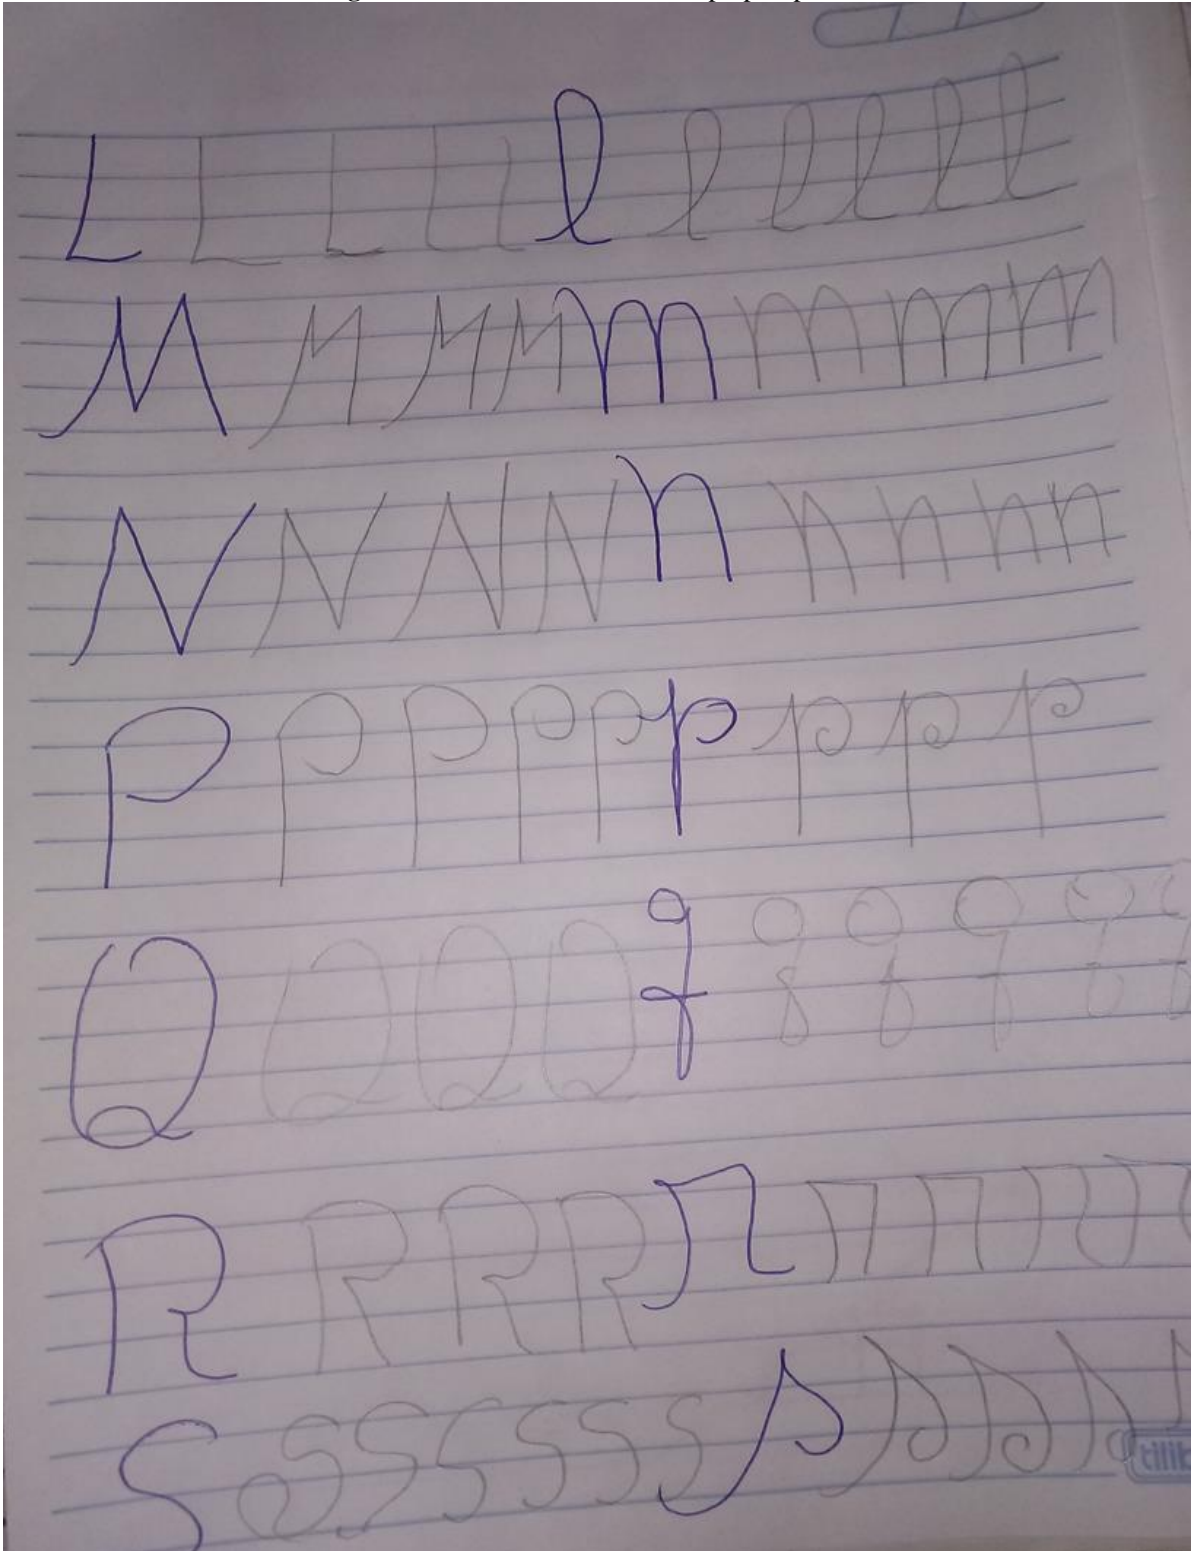 L L L L L l l l l l l
M M M M m m m m
N N N N n n n n n
P P P P P p p p p
Q Q Q Q q q q q q q
R R R R r r r r r
S S S S S S S s s s s s